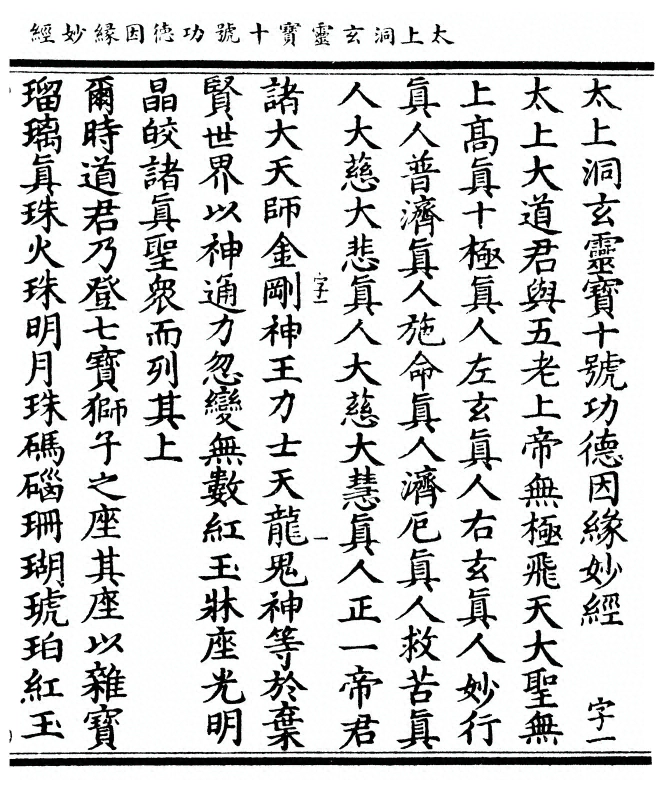 太上洞玄靈寶十號功德因緣妙經
太上洞玄靈寶十號功德因緣妙經 字一
太上大道君與五老上帝無極飛天大聖無
上高眞十極眞人左玄眞人右玄眞人妙行
眞人普濟眞人施命眞人濟厄眞人救苦眞
人大慈大悲眞人大慈大慧眞人正一帝君
字一 一
諸大天師金剛神王力士天龍鬼神等於棄
賢世界以神通力忽變無數紅玉牀座光明
晶皎諸眞聖衆而列其上
爾時道君乃登七寶獅子之座其座以雜寶
瑠璃眞珠火珠明月珠碼碯珊瑚琥珀紅玉